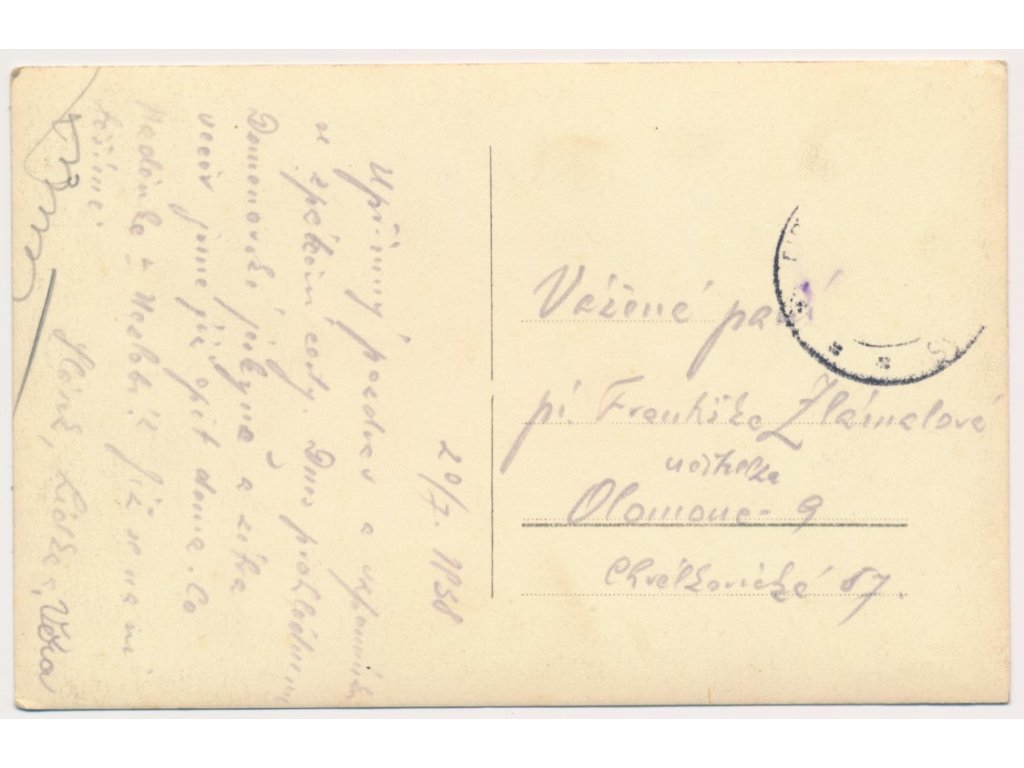 20/7. 1958
Upřímný pozdrav a vzpomínku
ze zpáteční cesty. Dnes prohlédneme
Demenovské jeskyně a zítra
večer jsme již opět doma. Co
Naděnka? Nezlobí? Již se na ni
těšíme.
Slávek, Lidka a Věra
Vážená paní
pí. Františka Zlámalová
učitelka
Olomouc - 9
Chválkovická 87.